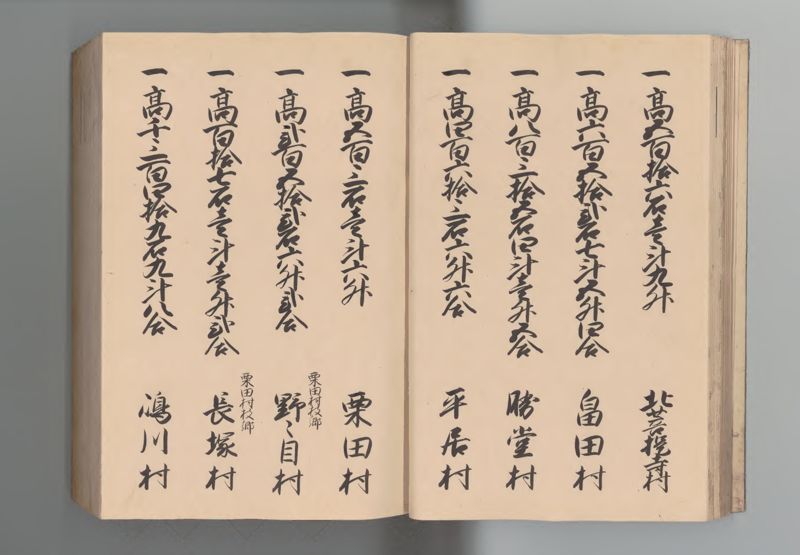 一 高五百拾六石壱斗九升 北菩提寺村
一 高六百五拾弐石七斗五升四合 畠田村
一 高八百三拾五石四斗壱升五合 勝堂村
一 高四百六拾三石六升六合 平居村
一 高五百三石壱斗六升 栗田村
栗田村枝郷
一 高弐百五拾弐石六升弐合 野々目村
栗田村枝郷
一 高百拾七石壱斗壱升弐合 長塚村
一 高千三百四拾九石九斗八合 鴻川村